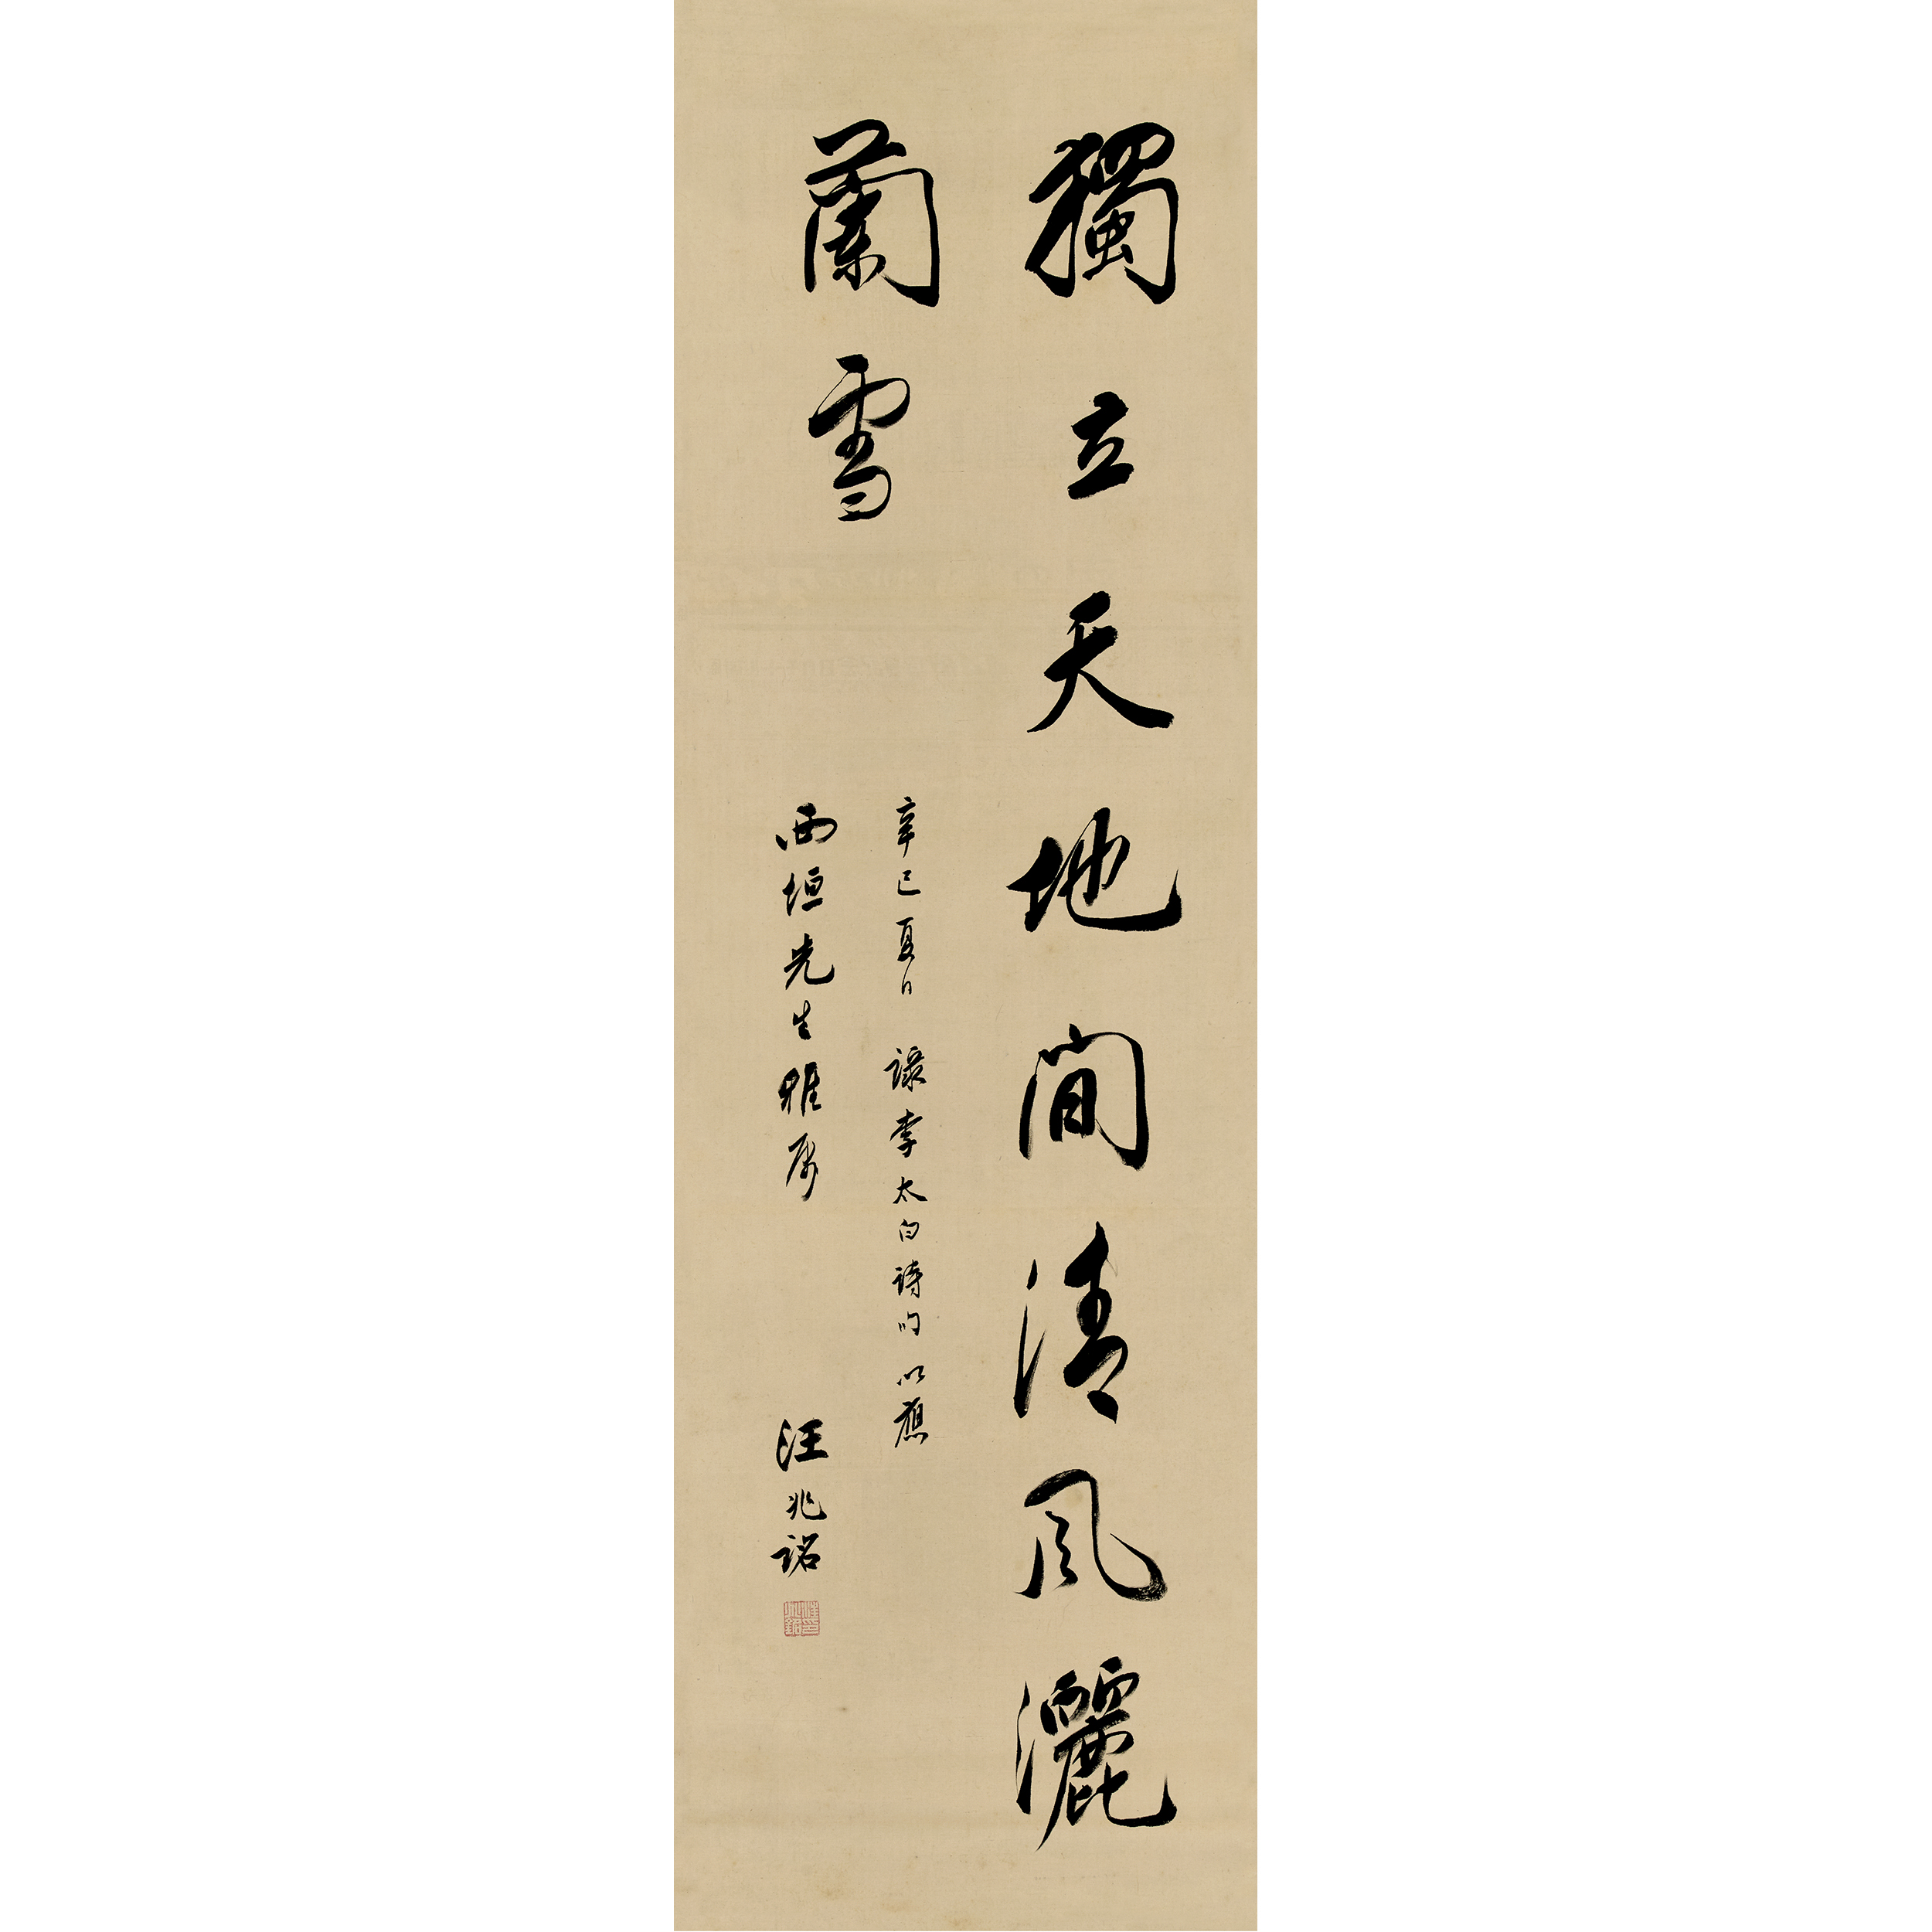 獨立天地間清風灑
蘭雪
辛巳夏日 錄李太白詩句以應
西垣先生雅屬 汪兆銘
汪兆銘印